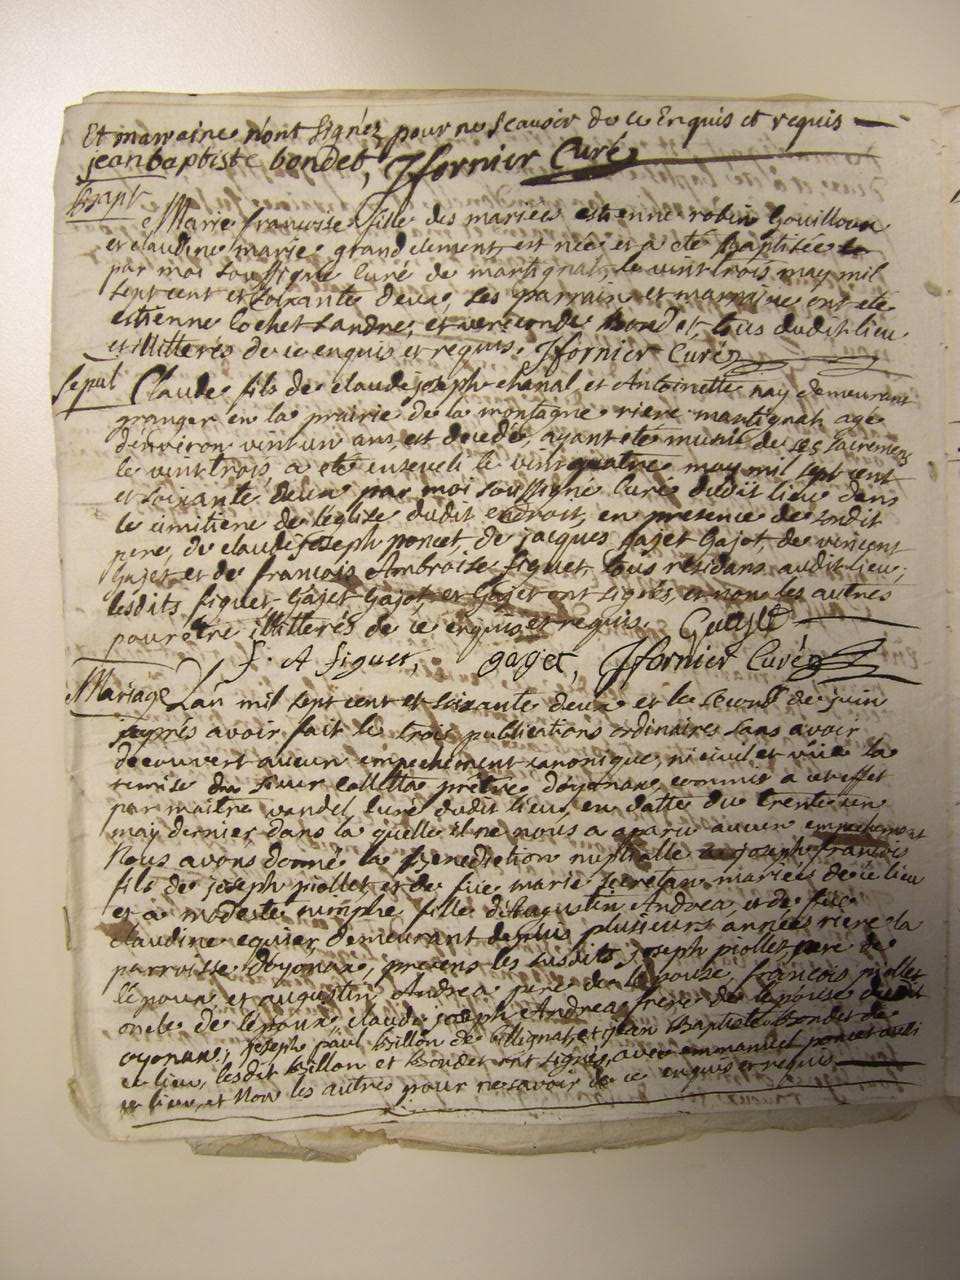 Et marraine n'ont signéz pour ne scavoir de ce Enquis et requis
jean baptiste bondet, Jfornier Curé
bapt
Marie francoise fille des mariés estienne robin Gouilloux
et claudine marie grand clement est née et a eté Baptisée
par moi soussigné Curé de martignat, le vint trois may mil
sept cent et soixante deux, ses parrain et marraine ont été
estienne Cochet Landre, et Bondet, tous dudit lieu
et illitterés de ce enquis et requis. Jfornier Curé
Sepul Claude fils de claude joseph chanal et Antoinette nay demeurant
granger en la prairie de la montagne riere martignat agé
denviron vint un ans, est decedé, ayant eté munit de ses sacremens
le vint trois, a eté enseveli le vint quatre may mil sept cent
et soixante deux par moi soussigné Curé dudit lieu dans
le cimitière de l'église dudit endroit, en presence de sondit
pere, de claude joseph poncet, de jacques gajet Gajot, de vincent
Gajet et de francois Ambroise figuet, tous residans audit lieu,
lesdits figuet Gajet Gajot, et Gajet ont signés, et non les autres
pour être illitterés de ce enquis et requis.
f. A figuet, gaget, Jfornier Curé
Mariage L'an mil sept cent et soixante deux et le second de juin
après avoir fait le trois publications ordinaires sans avoir
decouvert aucun empechement canonique, ni civil et vüe la
remise du sieur colletta prêtre d'oyonax commis a cet effet
par maitre vandel, curé dudit lieu, en datte du trente un
may dernier dans la quelle il ne nous a aparu aucun empechement
Nous avons donné la Benediction nuptialle a joseph francois
fils de joseph piollet, et de füe marie secretan mariés de ce lieu
et a modeste fille d'Augustin Andrea, et de füe
claudine equier demeurant depuis plusieurs années riere la
parroisse d'oyonax, presens les susdits joseph piollet pere de
l'époux, et augustin Andrea pere de l'épouse, francois piollet
oncle de l'époux, claude joseph Andrea frere de l'épouse dudit
oyonax, joseph paul Billon de billignat, et jean Baptiste Bondet de
ce lieu, lesdit Billon et Bondet ont signés, avec emmanuel poncet aussi
de ce lieu, et Non les autres pour ne savoir de ce enquis et requis